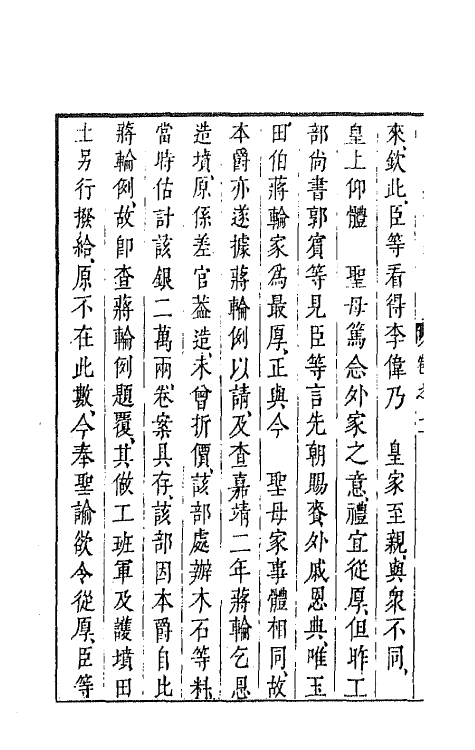 來欽此臣等看得李偉乃　皇家至親與衆不同、
皇上仰體　聖母篤念外家之意禮宜從厚但昨工
部尚書郭賓等見臣等言先朝賜賚外戚恩典唯玉
田伯蔣輪家爲最厚、正與今　聖母家事體相同、故
本爵亦遂據蔣輪例以請、及查嘉靖二年蔣輪乞恩
造墳、原係差官葢造、未曾折價、該部處辦木石等料、
當時估計該銀二萬兩、卷案具存、該部因本爵自比
蔣輪例、故卽查蔣輪例題覆、其做工班軍及護墳田
土另行撥給、原不在此數、今奉聖諭欲令從厚、臣等